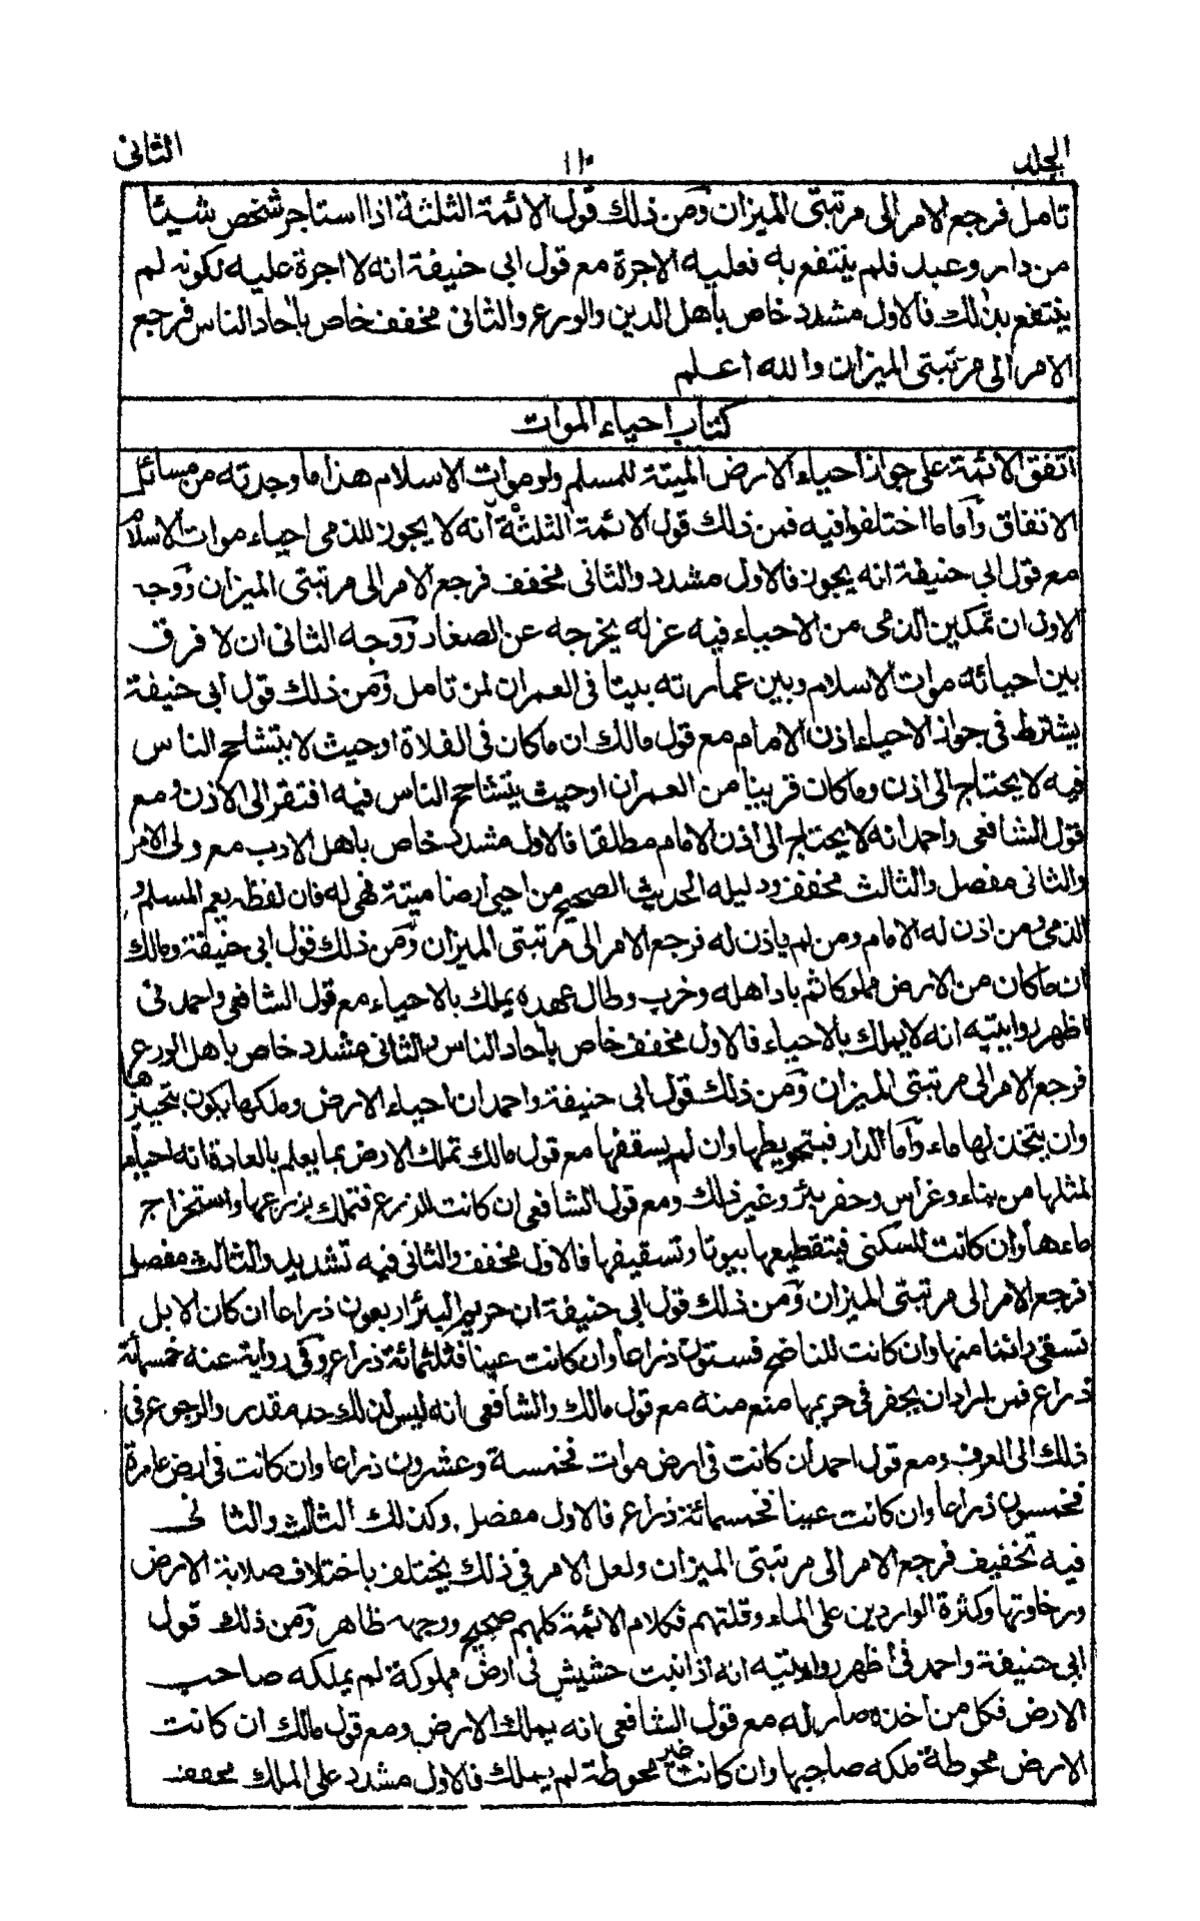 الجلد ١١٠ الثاني
تامل فرجع الامر الى مرتبتى الميزان ومن ذلك قول الائمة الثلثة اذا استاجر شخص شيئا
من دار وعبد فلم ينتفع به فعليه الاجرة مع قول ابى حنيفة انه لا اجرة عليه لكونه لم
ينتفع بذلك فالاول مشدد خاص باهل الدين والورع والثانى مخفف خاص باحاد الناس فرجع
الامر الى مرتبتى الميزان والله اعلم
كتاب احياء الموات
اتفق الائمة على جواز احياء الارض الميتة للمسلم ولو موات الاسلام هذا ما وجدته من مسائل
الاتفاق واما ما اختلفوا فيه فمن ذلك قول الائمة الثلثة انه لا يجوز للذمى احياء موات الاسلام
مع قول ابى حنيفة انه يجوز فالاول مشدد والثانى مخفف فرجع الامر الى مرتبتى الميزان ووجه
الاول ان تمكين الذمى من الاحياء فيه عزله يخرجه عن الصغار ووجه الثانى ان لا فرق
بين احيائه موات الاسلام وبين عمارته بيتا فى العمران لمن تامل ومن ذلك قول ابى حنيفة
يشترط فى جواز الاحياء اذن الامام مع قول مالك ان ماكان فى الفلاة اوحيث لا يتشاح الناس
فيه لا يحتاج الى اذن وماكان قريبا من العمران اوحيث يتشاح الناس فيه افتقر الى الاذن ومع
قول الشافعى واحمد انه لا يحتاج الى اذن الامام مطلقا فالاول مشدد خاص باهل الادب مع ولى الامر
والثانى مفصل والثالث مخفف ودليله الحديث الصحيح من احيى ارضا ميتة فهى له فان لفظه يعم المسلم و
الذمى ومن اذن له الامام ومن لم ياذن له فرجع الامر الى مرتبتى الميزان ومن ذلك قول ابى حنيفة ومالك
ان ماكان من الارض مملوكا ثم باد اهله وخرب وطال عهده يملك بالاحياء مع قول الشافعى واحمد فى
اظهر روايتيه انه لا يملك بالاحياء فالاول مخفف خاص باحاد الناس والثانى مشدد خاص باهل الورع
فرجع الامر الى مرتبتى الميزان ومن ذلك قول ابى حنيفة واحمد ان احياء الارض وملكها يكون بتحجيزها
وان يتخذ لها ماء واما الدار فبتحويطها وان لم يسقفها مع قول مالك تملك الارض بما يعلم بالعادة انه احياء
لمثلها من بناء وغراس وحفر بئر وغير ذلك ومع قول الشافعى ان كانت للزرع فتملك بزرعها واستخراج
ماءها وان كانت للسكنى فبتقطيعها بيوتا وتسقيفها فالاول مخفف والثانى فيه تشديد والثالث مفصل
فرجع الامر الى مرتبتى الميزان ومن ذلك قول ابى حنيفة ان حريم البئر اربعون ذراعا ان كان الابل
تسقى دائما منها وان كانت للناضح فستون ذراعا وان كانت عينا فثلثمائة ذراع وفى رواية عنه خمسمائة
ذراع فمن اراد ان يحفر فى حريمها منع منه مع قول مالك والشافعى انه ليس لذلك حد مقدر والرجوع فى
ذلك الى العرف ومع قول احمد ان كانت فى ارض موات فخمسة وعشرون ذراعا وان كانت فى ارض عامرة
فخمسون ذراعا وان كانت عينا فخمسمائة ذراع فالاول مفصل وكذلك الثالث والثانى
فيه تخفيف فرجع الامر الى مرتبتى الميزان ولعل الامر فى ذلك يختلف باختلاف صلابة الارض
ورخاوتها وكثرة الواردين على الماء وقلتهم فكلام الائمة كلهم صحيح ووجهه ظاهر ومن ذلك قول
ابى حنيفة واحمد فى اظهر روايتيه انه اذا نبت حشيش فى ارض مملوكة لم يملكه صاحب
الارض فكل من اخذه صار له مع قول الشافعى انه يملك الارض ومع قول مالك ان كانت
الارض محوطة ملكه صاحبها وان كانت غير محوطة لم يملك فالاول مشدد على الملك مخفف